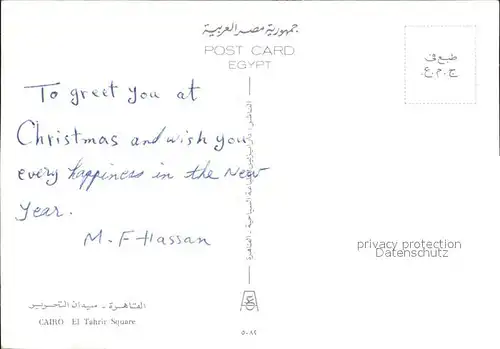 جمهورية مصر العربية
POST CARD
EGYPT
طبع فى
ج.م.ع.
To greet you at
Christmas and wish you
every happiness in the New
Year.
M. F Hassan
privacy protection
Datenschutz
القاهرة - ميدان التحرير
CAIRO El Tahrir Square
٥٠٨٤